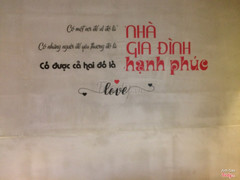 Có một nơi để về đó là NHÀ
Có những người để yêu thương đó là GIA ĐÌNH
Có được cả hai đó là hạnh phúc
love